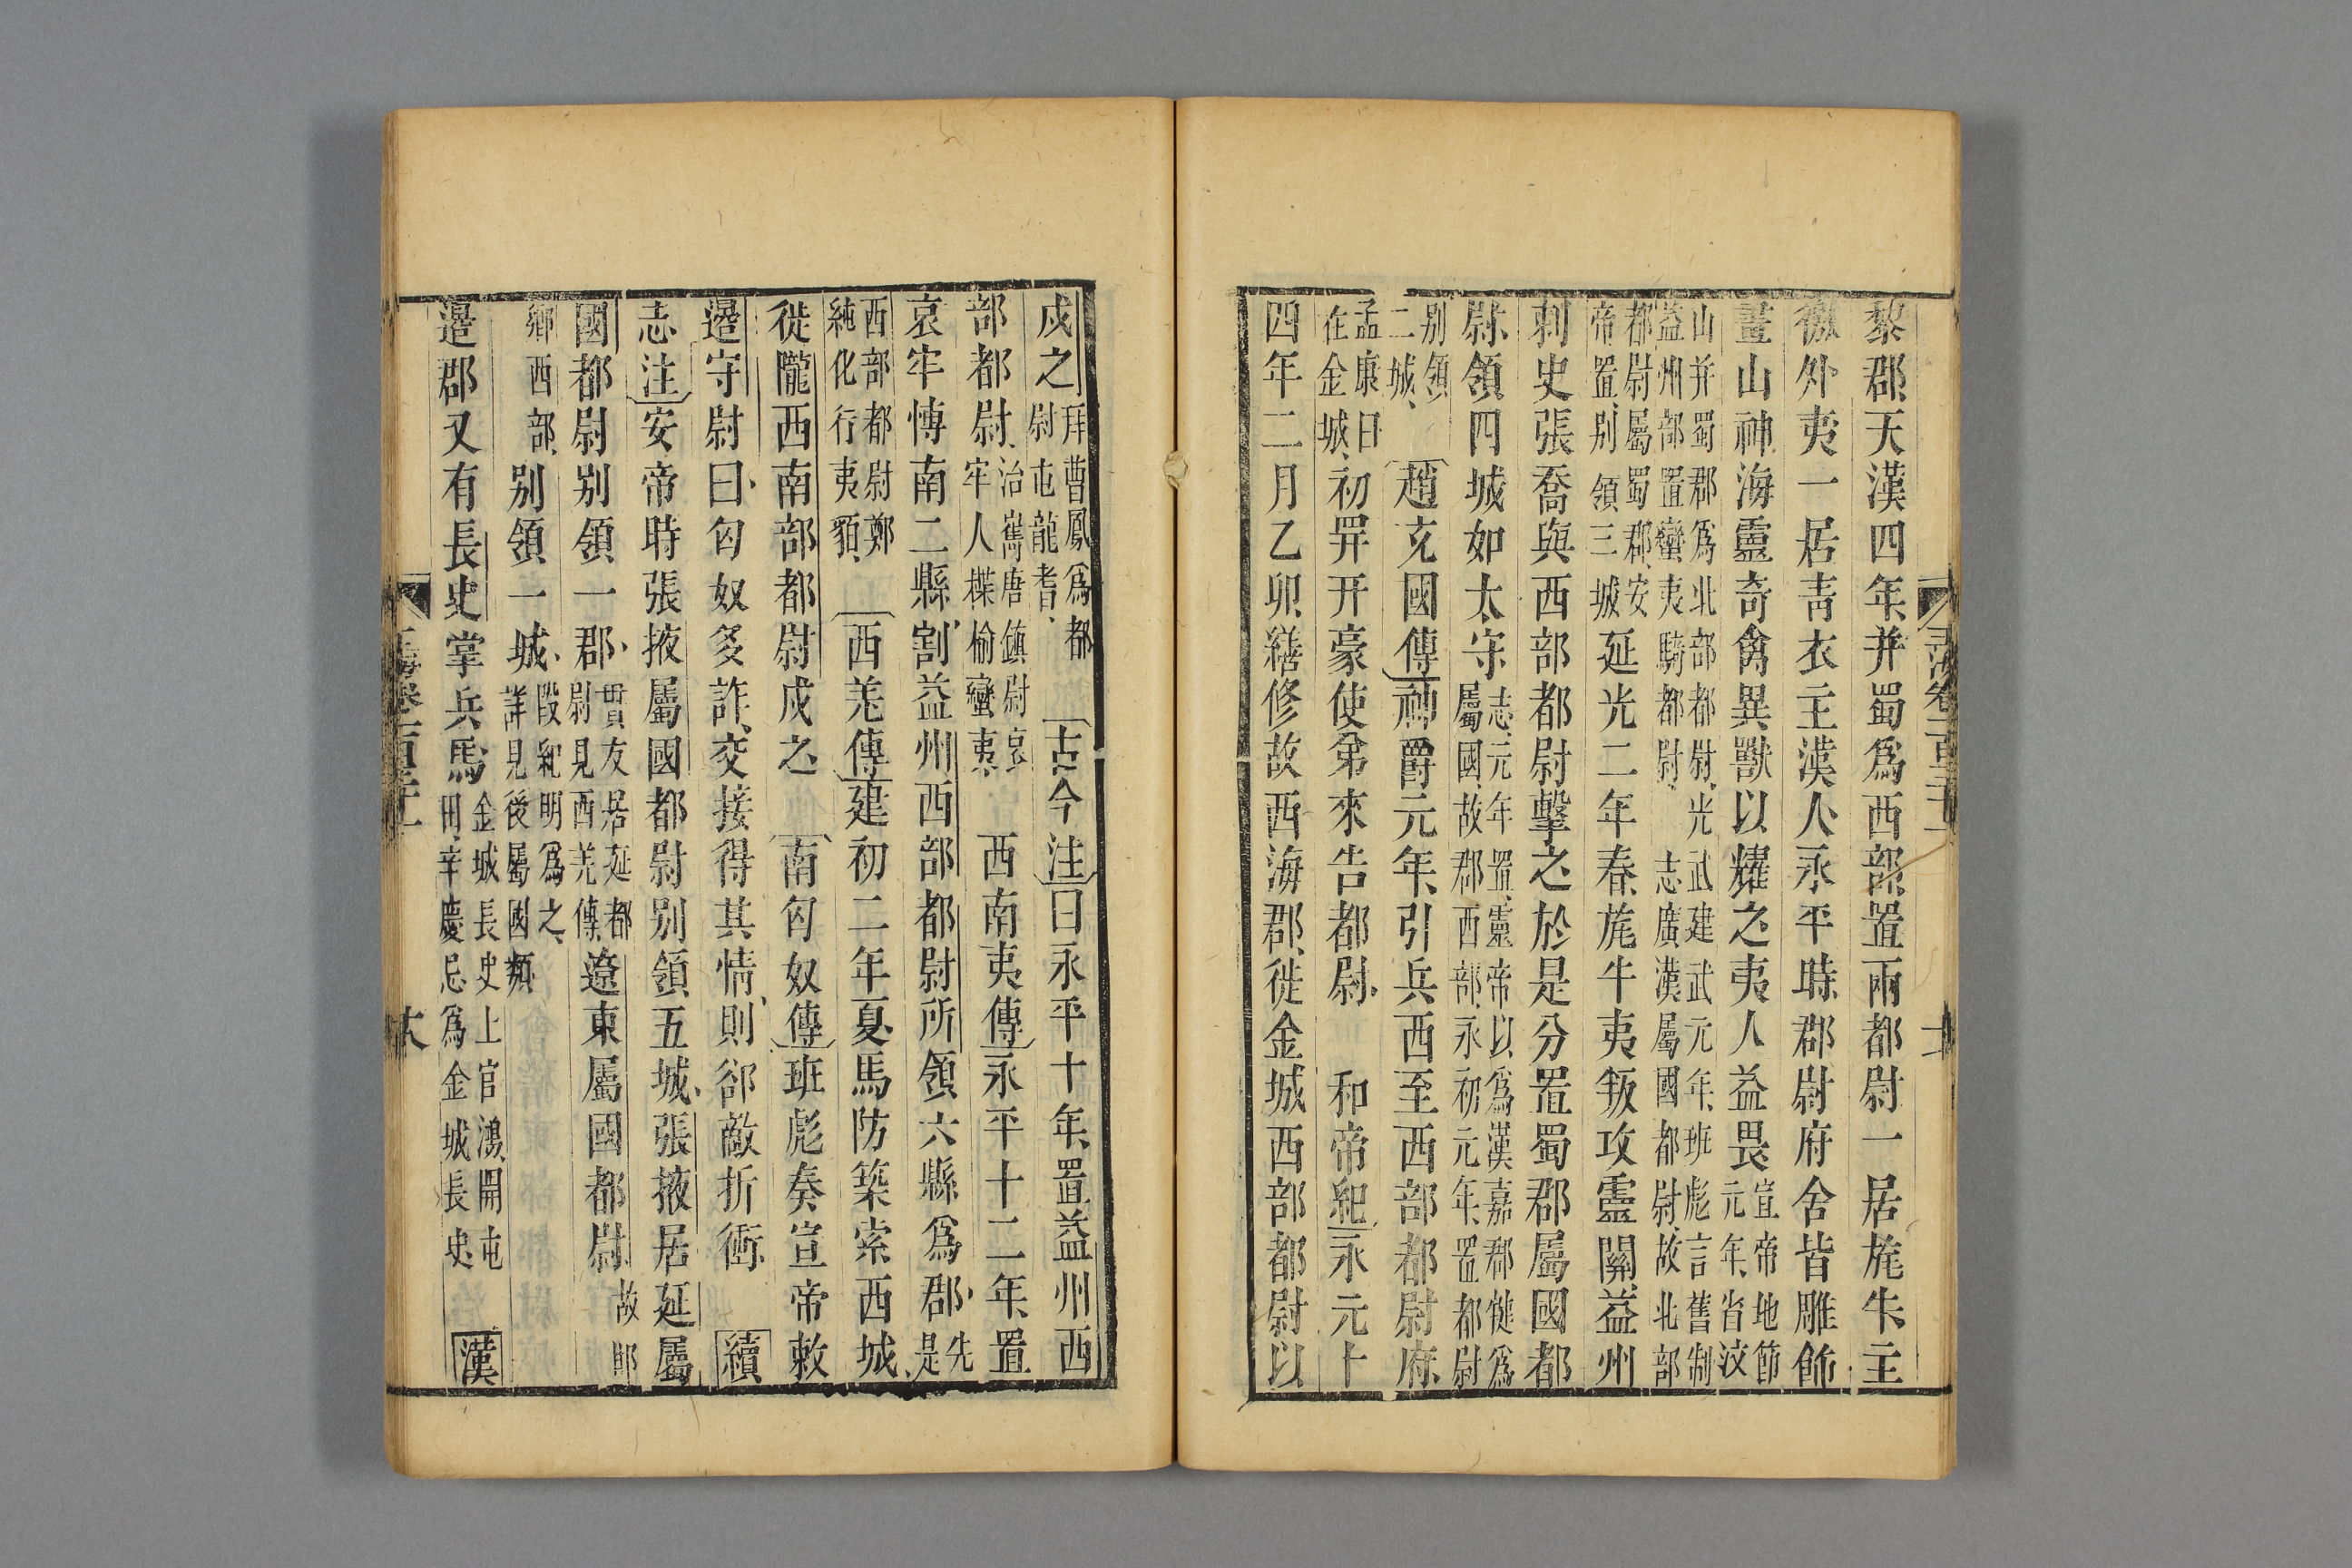 黎郡天漢四年、并蜀爲西部、置兩都尉一居旄牛主
徼外夷一居青衣主漢人永平時郡尉府舍皆雕飾
畫山神海靈奇禽異獸以耀之夷人益畏宣帝地節元年、省汶
山并蜀郡爲北部都尉、光武建武元年、班彪言舊制益州部置蠻夷騎都尉、志廣漢屬國都尉、故北部
都尉屬蜀郡、安帝置、別領三城延光二年春、旄牛夷叛攻靈關、益州
刺史張喬與西部都尉擊之於是分置蜀郡屬國都
尉、領四城如太守、志、元年置、靈帝以爲漢嘉郡犍爲屬國、故郡西部、永初元年、置都尉
別領二城、趙充國傳神爵元年、引兵西至西部都尉府、
孟康曰在金城、初罕开豪使弟來告都尉、和帝紀永元十
四年二月乙卯、繕修故西海郡、徙金城西部都尉以
戍之拜曹鳳爲都尉屯龍耆、古今注曰永平十年、置益州西
部都尉、治巂唐鎮尉哀牢人楪榆蠻夷、西南夷傳永平十二年、置
哀牢慱南二縣、割益州西部都尉所領六縣爲郡、先是
西部都尉鄭純化行夷貊、西羌傳建初二年夏、馬防築索西城、
徙隴西南部都尉戍之南匈奴傳班彪奏宣帝敕
邊守尉曰、匈奴多詐、交接得其情、則郤敵折衝、續
志注安帝時張掖屬國都尉別領五城、張掖居延屬
國都尉別領一郡、貫友居延都尉見西羌傳、遼東屬國都尉、故邯
鄉西部、別領一城、段紀明爲之、詳見後屬國類
邊郡又有長史掌兵馬、金城長史上官鴻、開屯田、辛慶忌爲金城長史、漢
玉海卷一百三十一